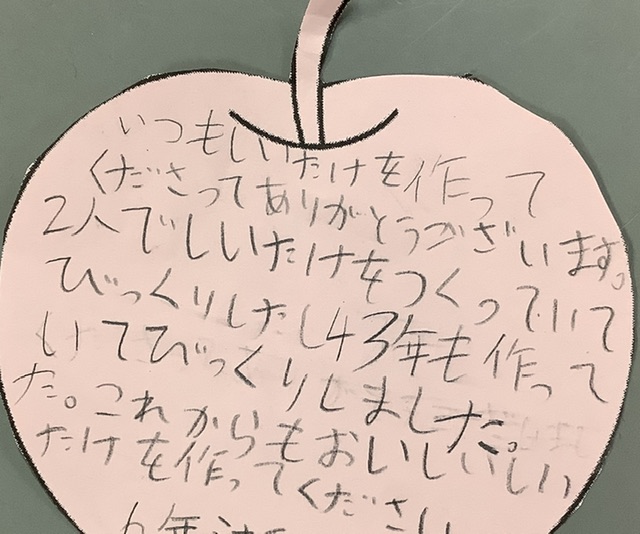 いつもしいたけを作って
くださってありがとうございます。
2人でしいたけをつくっていて
びっくりしたし43年も作って
いてびっくりしました。
た。これからもおいしいしい
たけを作ってください